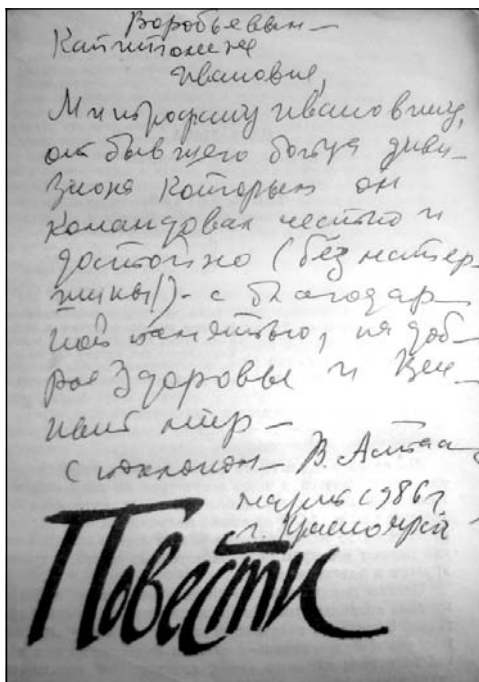 Воробьевым –
Капитолине
Ивановне,
Митрофану Ивановичу,
от бывшего бойца диви-
зиона которым он
командовал честно и
достойно (без матер-
щины!) – с благодар-
ной памятью, на доб-
рое здоровье и
мир –
с поклоном – В. Астаф
март 1986 г
г. Красноярск
Повести